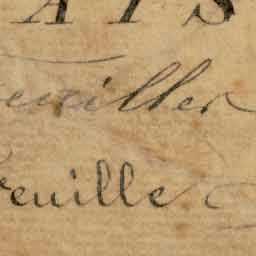 AIS
euiller
reuille